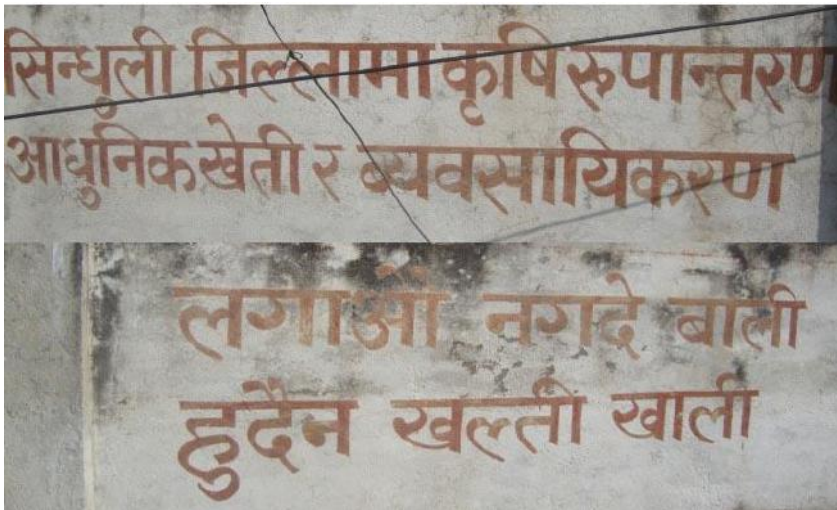 सिन्धुली जिल्लामा कृषि रूपान्तरण
आधुनिक खेती र ब्यवसायिकरण
लगाऔं नगदे बाली
हुदैन खल्ती खाली